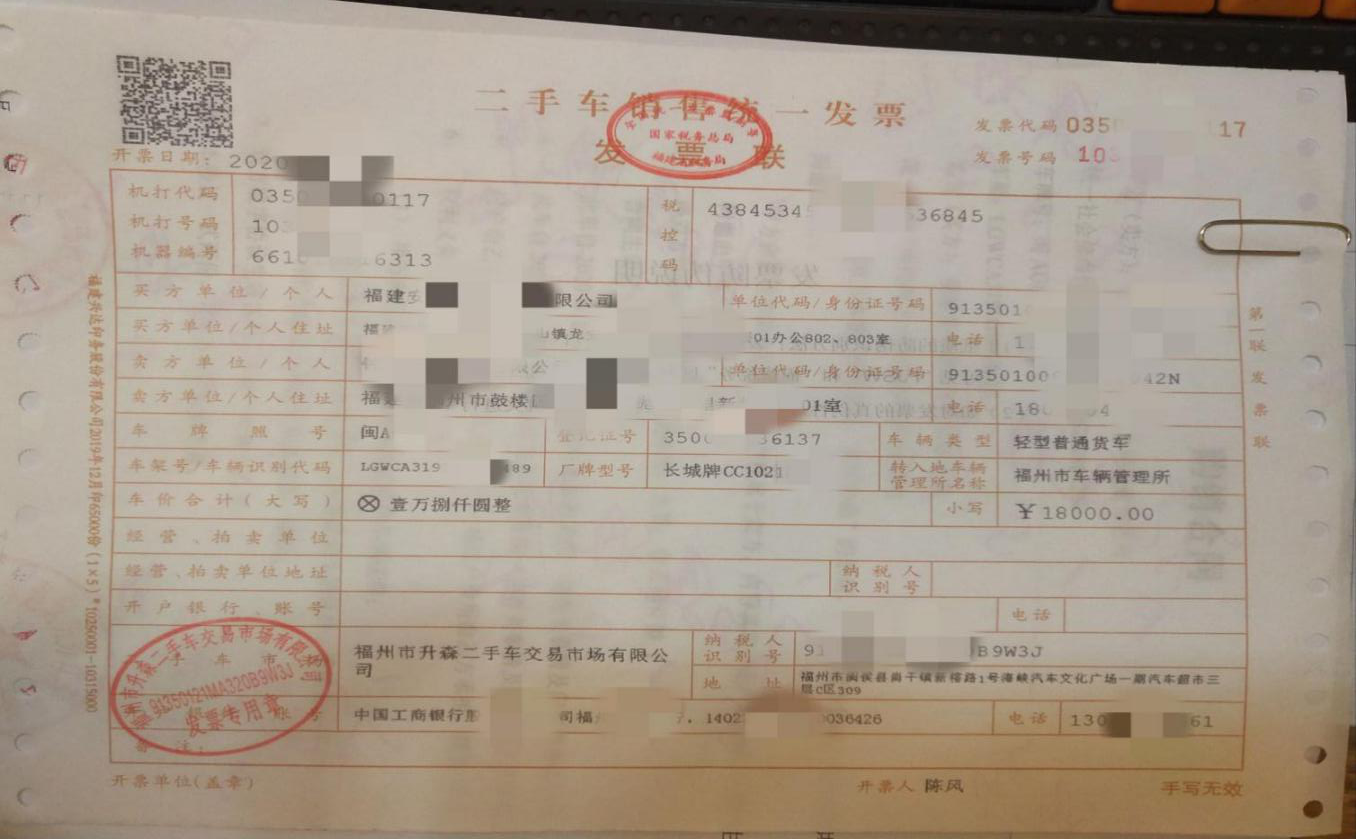 二手车销售统一发票
发票联
国家税务总局
福建省税务局
发票代码 035 117
发票号码 103
开票日期: 2020
机打代码 035 0117
机打号码 10
机器编号 661 16313
税控码 43845345 36845
买方单位/个人 福建 限公司 单位代码/身份证号码 913501
买方单位/个人住址 福建 镇龙 01办公802、803室 电话 1
卖方单位/个人 限公 单位代码/身份证号码 91350100 42N
卖方单位/个人住址 福建 州市鼓楼 新 01室 电话 18 04
车牌照号 闽A 登记证号 350 36137 车辆类型 轻型普通货车
车架号/车辆识别代码 LGWCA319 489 厂牌型号 长城牌CC1021 转入地车辆管理所名称 福州市车辆管理所
车价合计(大写) ⊗ 壹万捌仟圆整 小写 ¥18000.00
经营、拍卖单位
经营、拍卖单位地址 纳税人识别号
开户银行、账号 电话
二手车市场 福州市升森二手车交易市场有限公司 纳税人识别号 91 B9W3J
地址 福州市闽侯县尚干镇新榕路1号海峡汽车文化广场一期汽车超市三层C区309
中国工商银行股 司福 1402 0036426 电话 130 61
备注:
福州市升森二手车交易市场有限公司
91350121MA320B9W3J
发票专用章
开票单位(盖章) 开票人 陈风 手写无效
第一联 发票联